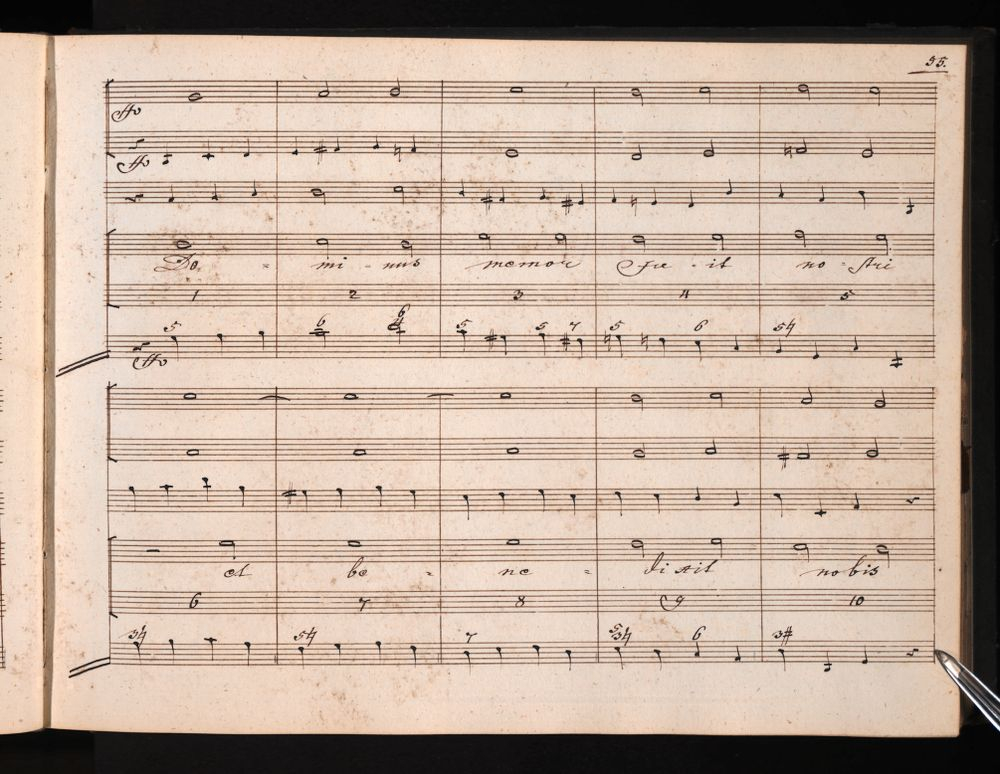 35.
ffo
ffo
Do - mi - nus memor fu - it no - stri
1 2 3 4 5
5 6 6 4 5 5 7 5 6 54
ffo
et be - ne - dixit nobis
6 7 8 9 10
34 54 7 5 34 6 3#